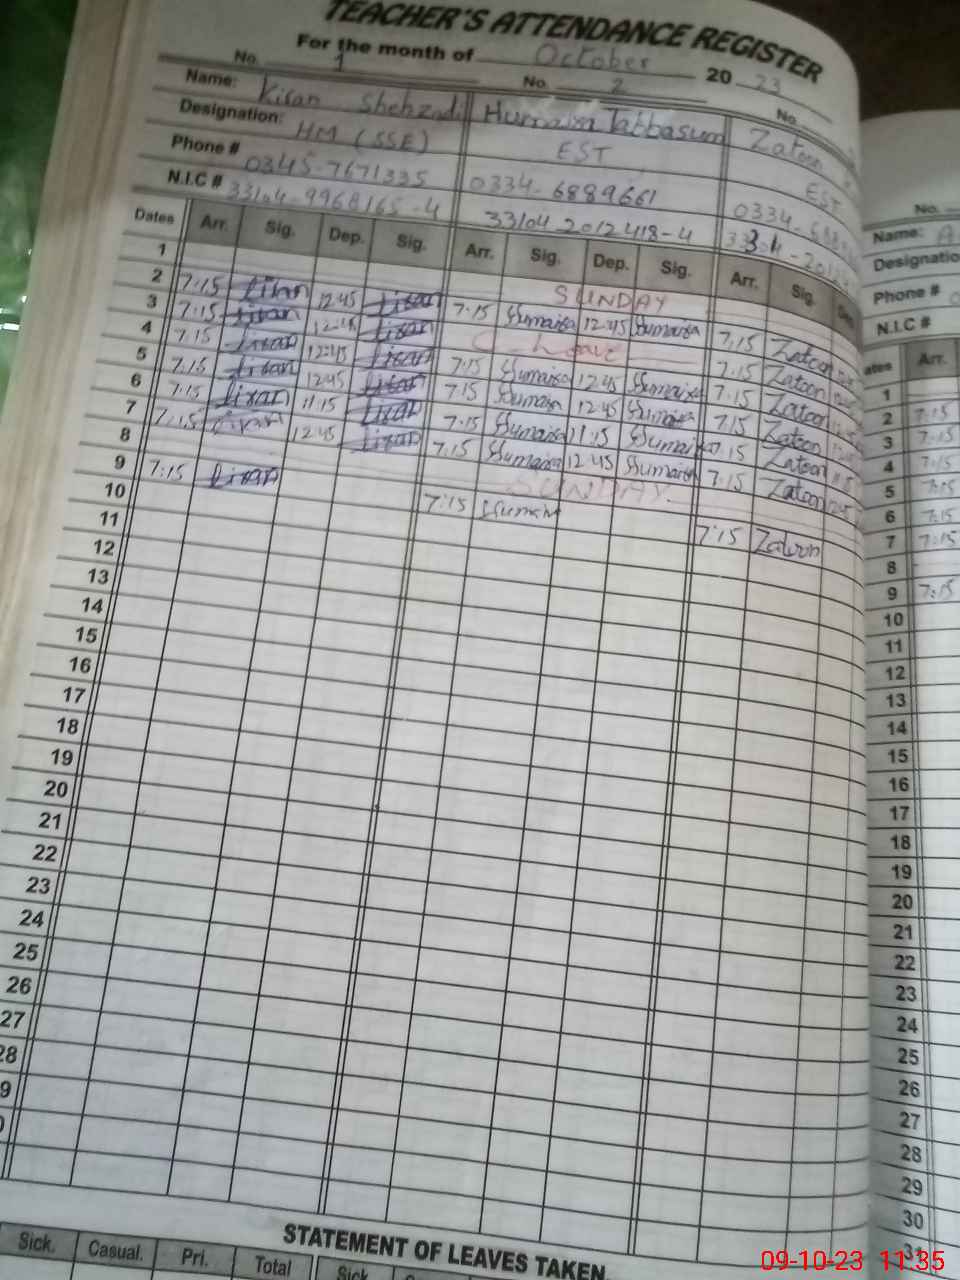 TEACHER'S ATTENDANCE REGISTER
For the month of October 2023
No. 1 No. 2 No.
Name: Kiran Shehzadi Humaira Tabbasum Zatoon
Designation: HM (SSE) EST EST
Phone # 0345-7671335 0334-6889661 0334-688
N.I.C # 33104-9968165-4 33104-2012418-4
Dates Arr. Sig. Dep. Sig. Arr. Sig. Dep. Sig. Arr. Sig. Dep.
1 SUNDAY
2 7:15 Kiran 12:45 Kiran 7:15 Humaira 12:45 Humaira 7:15 Zatoon
3 7:15 Kiran 12:45 Kiran C-Leave 7:15 Zatoon
4 7:15 Kiran 12:45 Kiran 7:15 Humaira 12:45 Humaira 7:15 Zatoon
5 7:15 Kiran 12:45 Kiran 7:15 Humaira 12:45 Humaira 7:15 Zatoon
6 7:15 Kiran 11:15 Kiran 7:15 Humaira 11:15 Humaira 7:15 Zatoon
7 7:15 Kiran 12:45 Kiran 7:15 Humaira 12:45 Humaira 7:15 Zatoon
8 SUNDAY
9 7:15 Kiran 7:15 Humaira 7:15 Zatoon
10
11
12
13
14
15
16
17
18
19
20
21
22
23
24
25
26
27
28
9
0
STATEMENT OF LEAVES TAKEN
Sick. Casual. Pri. Total Sick
No.
Name: A
Designation
Phone #
N.I.C #
ates Arr.
1
2 7:15
3 7:15
4 7:15
5 7:15
6 7:15
7 7:15
8
9 7:15
10
11
12
13
14
15
16
17
18
19
20
21
22
23
24
25
26
27
28
29
30
31
09-10-23 11:35